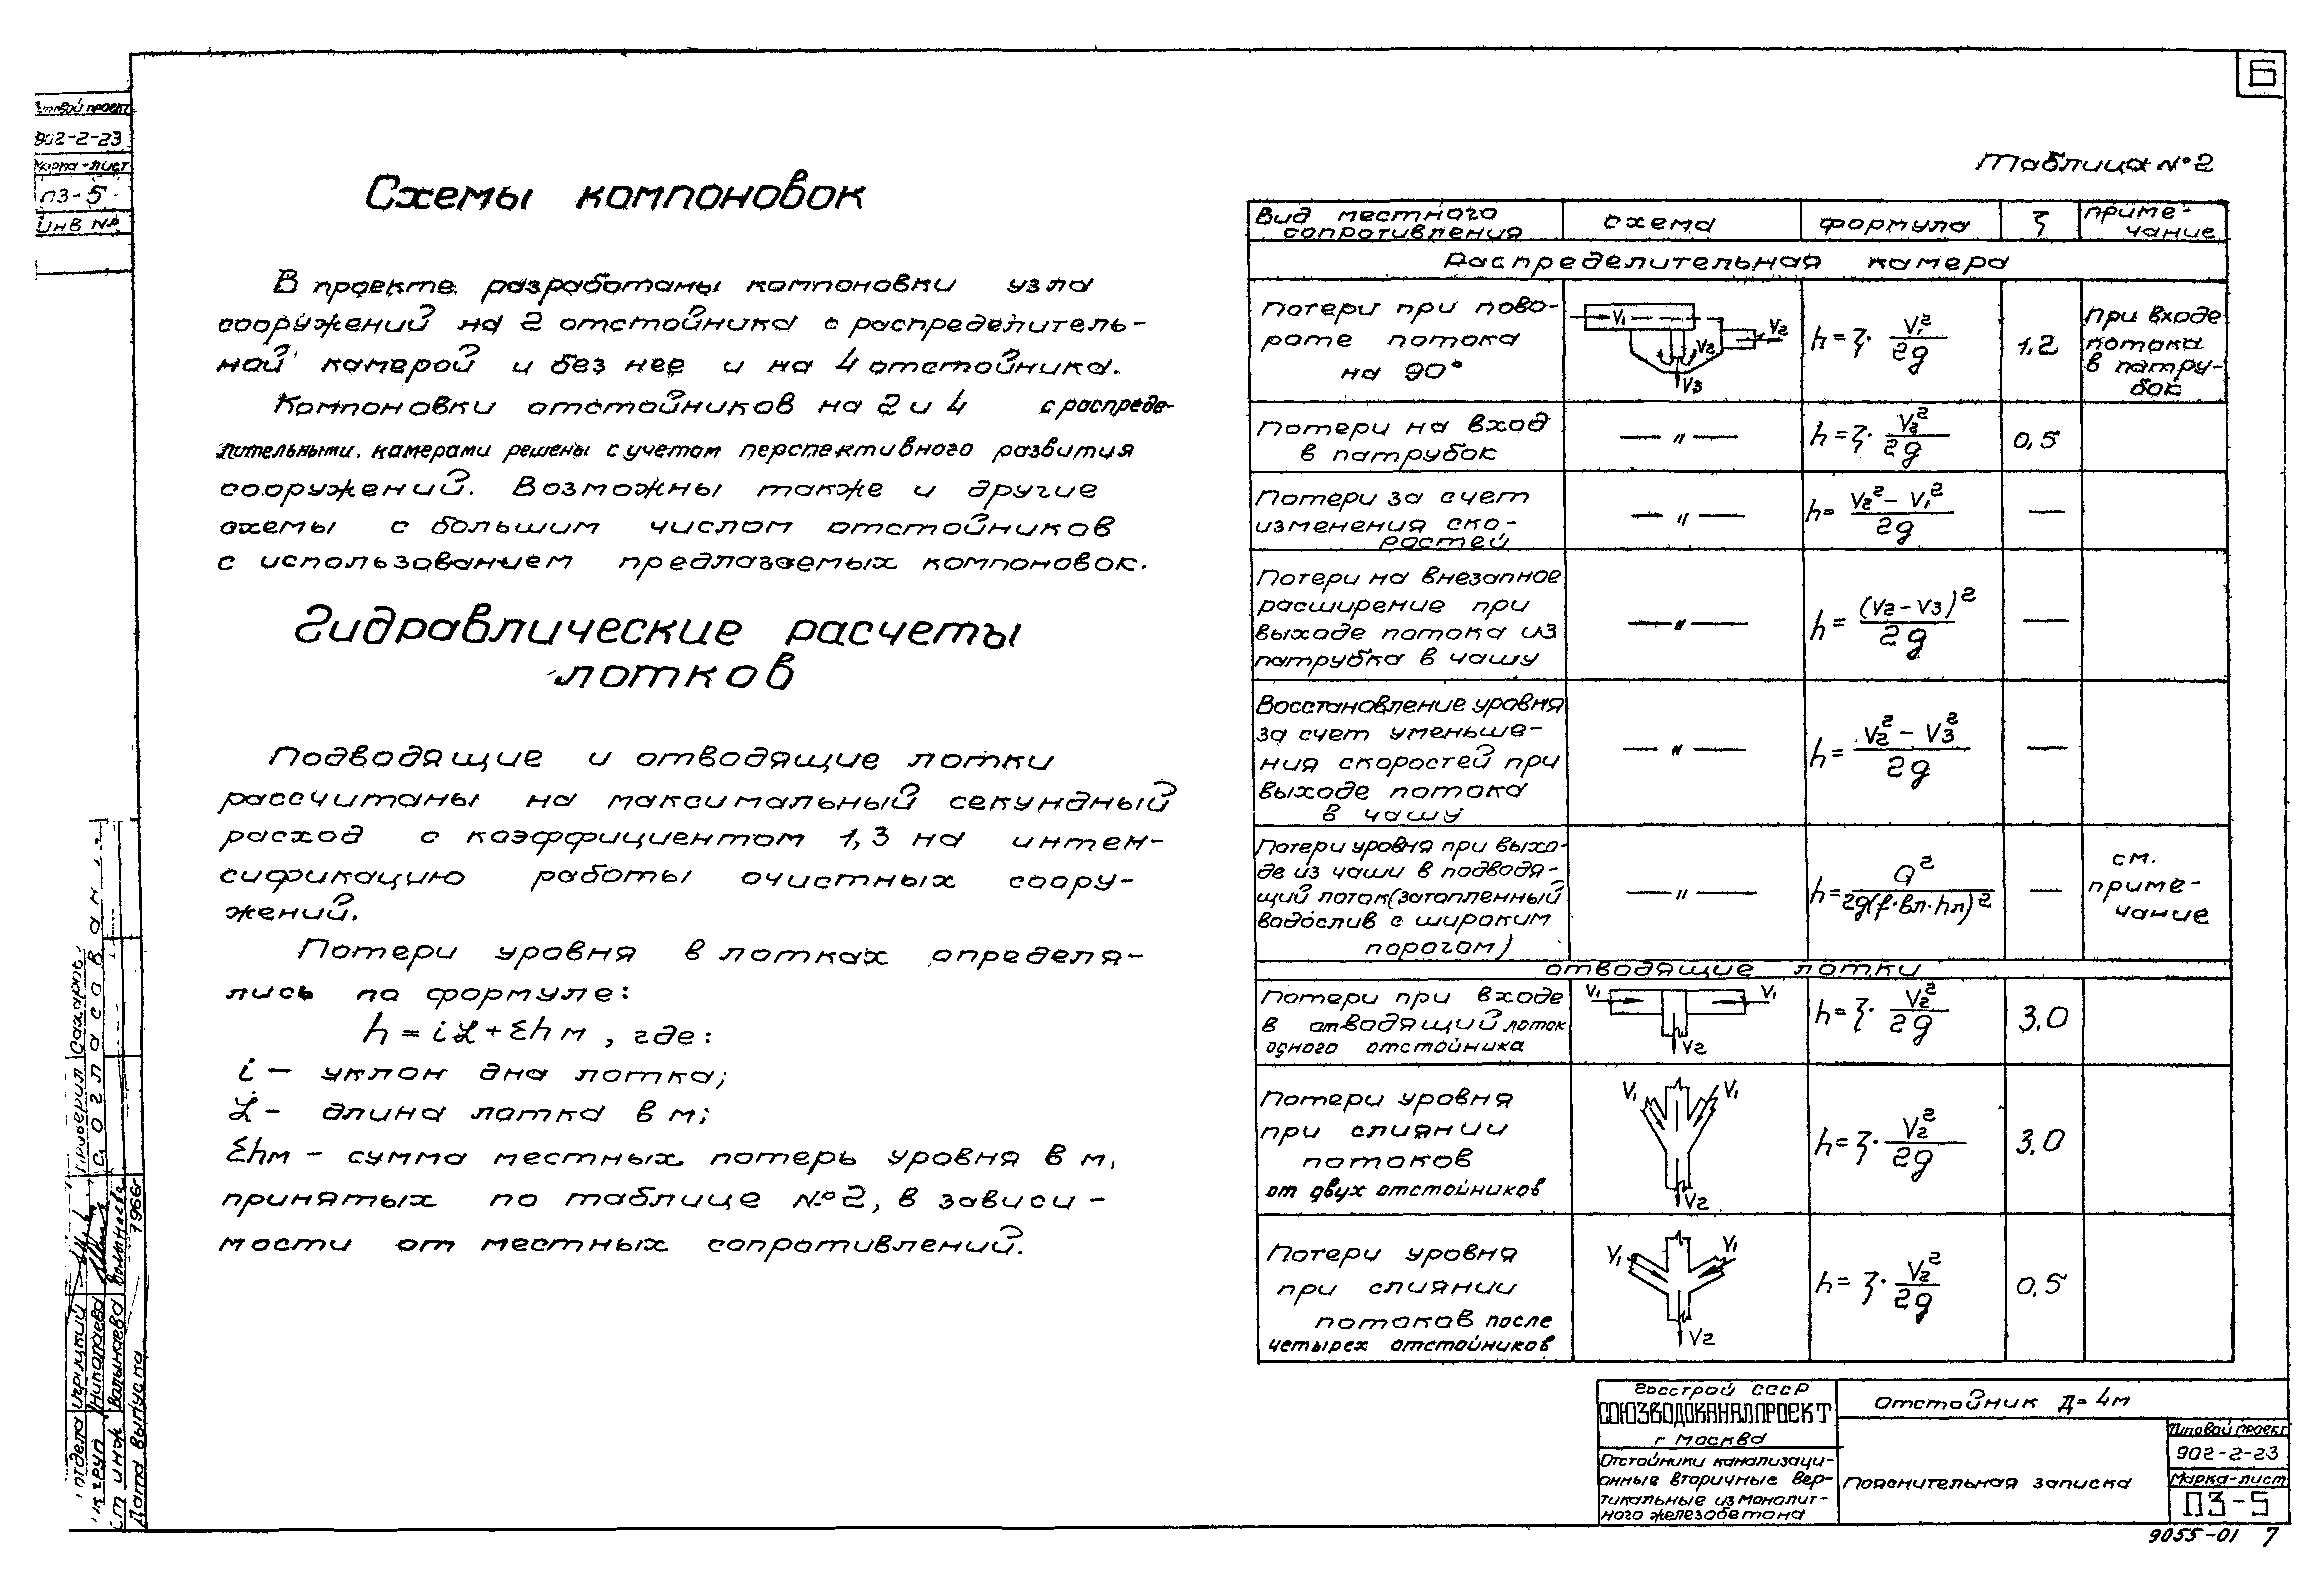 Б
Типовой проект
902-2-23
Марка-лист
ПЗ-5
Инв №
Схемы компоновок
В проекте разработаны компоновки узла
сооружений на 2 отстойника с распределитель-
ной камерой и без нее и на 4 отстойника.
Компоновки отстойников на 2 и 4 с распреде-
лительными. камерами решены с учетом перспективного развития
сооружений. Возможны также и другие
схемы с большим числом отстойников
с использованием предлагаемых компоновок.
Гидравлические расчеты
лотков
Подводящие и отводящие лотки
рассчитаны на максимальный секундный
расход с коэффициентом 1,3 на интен-
сификацию работы очистных соору-
жений.
Потери уровня в лотках определя-
лись по формуле:
h = iL + Σhм, где:
i — уклон дна лотка;
L — длина лотка в м;
Σhм — сумма местных потерь уровня в м,
принятых по таблице №2, в зависи-
мости от местных сопротивлений.
Таблица №2
Вид местного сопротивления | схема | формула | ζ | приме-чание
Распределительная камера
Потери при пово-
роте потока
на 90°
V₁ V₂ V₂ V₃
h = ζ · V₁²/2g
1,2
При входе
потока
в патру-
бок
Потери на вход
в патрубок
— " —
h = ζ · V₂²/2g
0,5
Потери за счет
изменения ско-
ростей
— " —
h = V₂² - V₁²/2g
—
Потери на внезапное
расширение при
выходе потока из
патрубка в чашу
— " —
h = (V₂ - V₃)²/2g
—
Восстановление уровня
за счет уменьше-
ния скоростей при
выходе потока
в чашу
— " —
h = V₂² - V₃²/2g
—
Потери уровня при выхо-
де из чаши в подводя-
щий лоток (затопленный
водослив с широким
порогом)
— " —
h = Q²/2g(f·bл·hл)²
—
см.
приме-
чание
отводящие лотки
Потери при входе
в отводящий лоток
одного отстойника
V₁ V₁ V₂
h = ζ · V₂²/2g
3.0
Потери уровня
при слиянии
потоков
от двух отстойников
V₁ V₁ V₂
h = ζ · V₂²/2g
3.0
Потери уровня
при слиянии
потоков после
четырех отстойников
V₁ V₁ V₂
h = ζ · V₂²/2g
0.5
Госстрой СССР
СОЮЗВОДОКАНАЛПРОЕКТ
г Москва
Отстойники канализаци-
онные вторичные вер-
тикальные из монолит-
ного железобетона
Отстойник Д=4м
Пояснительная записка
Типовой проект
902-2-23
Марка-лист
ПЗ-5
9055-01 7
Согласован
Проверил
отдела
к груп Николаева
ст инж Волынаева
Дата выпуска 1966г